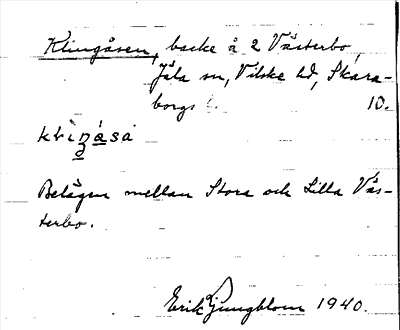 Klingåsen, backe å 2 Västerbo,
Jäla sn, Vilske hd, Skara-
borgs l. 10.
Belägen mellan Stora och Lilla Väs-
terbo.
Erik Ljungblom 1940.